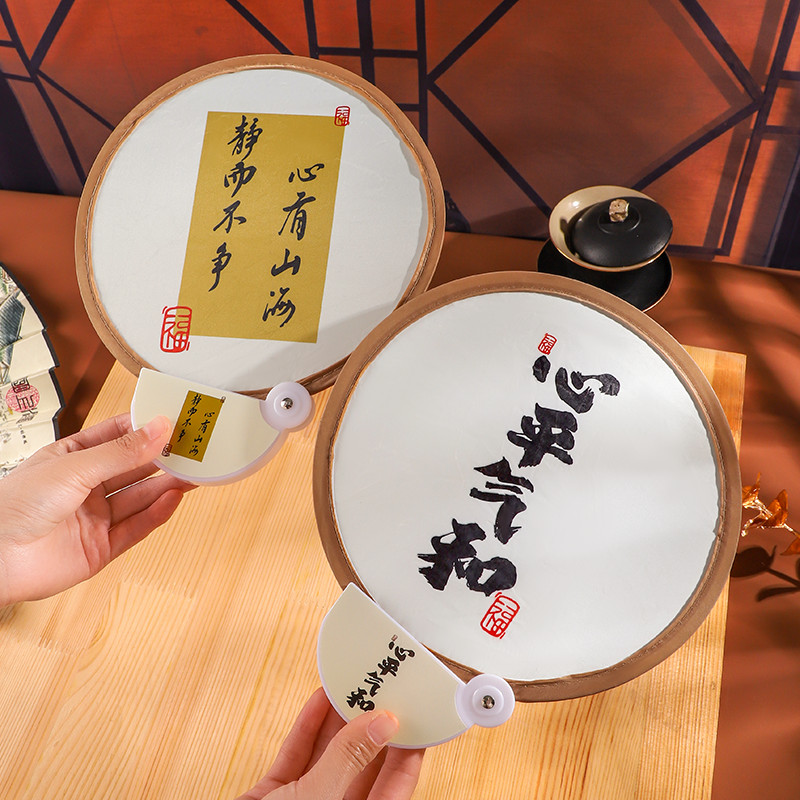 心有山海
静而不争
福
福
心有山海
静而不争
福
心平气和
福
心平气和